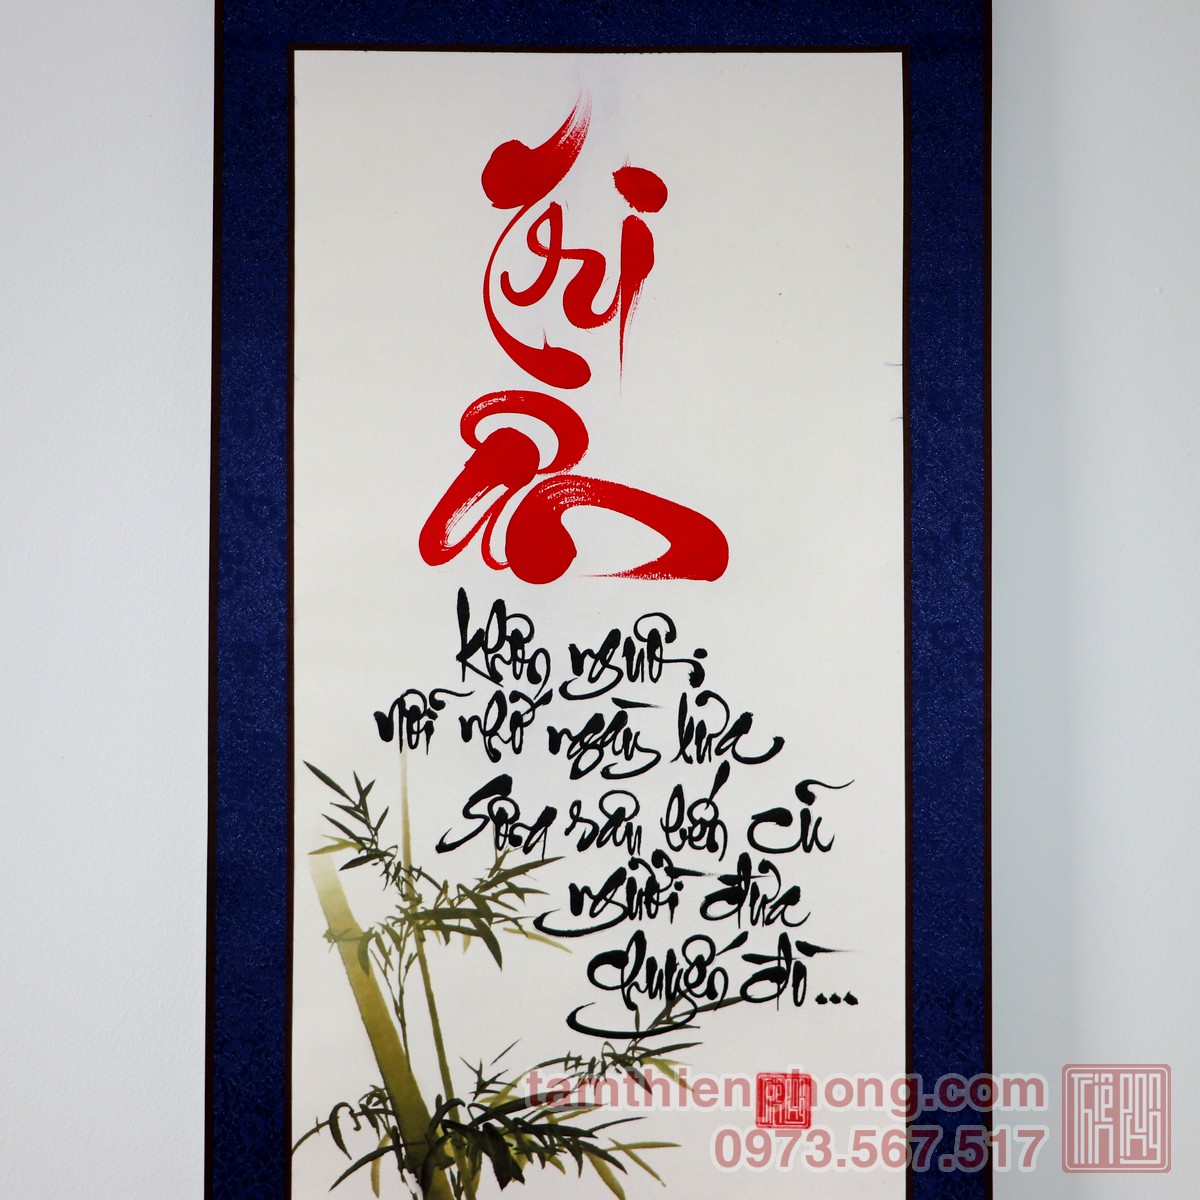 Tri
Ân
khôn nguôi
nỗi nhớ ngày xưa
Sông sâu bến cũ
người đưa
chuyến đò...
tamthienphong.com
0973.567.517